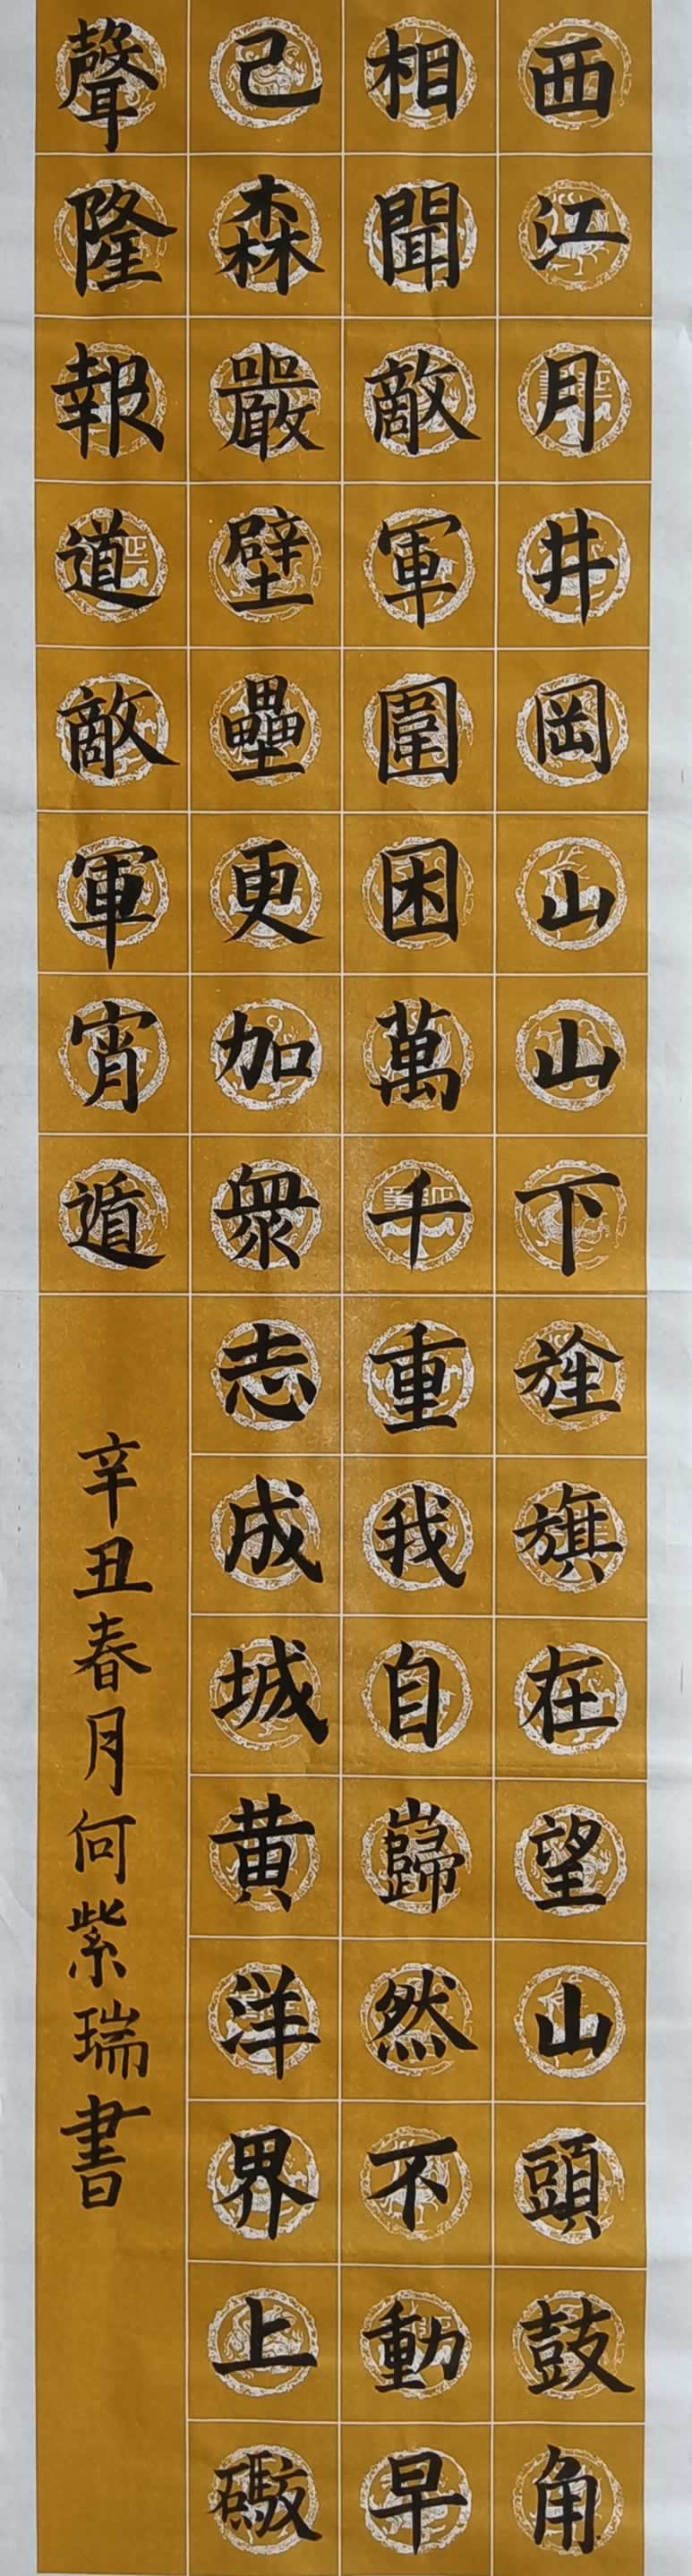 西江月井岡山山下旌旗在望山頭鼓角
相聞敵軍圍困萬千重我自巋然不動早
己森嚴壁壘更加衆志成城黄洋界上礮
聲隆報道敵軍宵遁
辛丑春月何紫瑞書